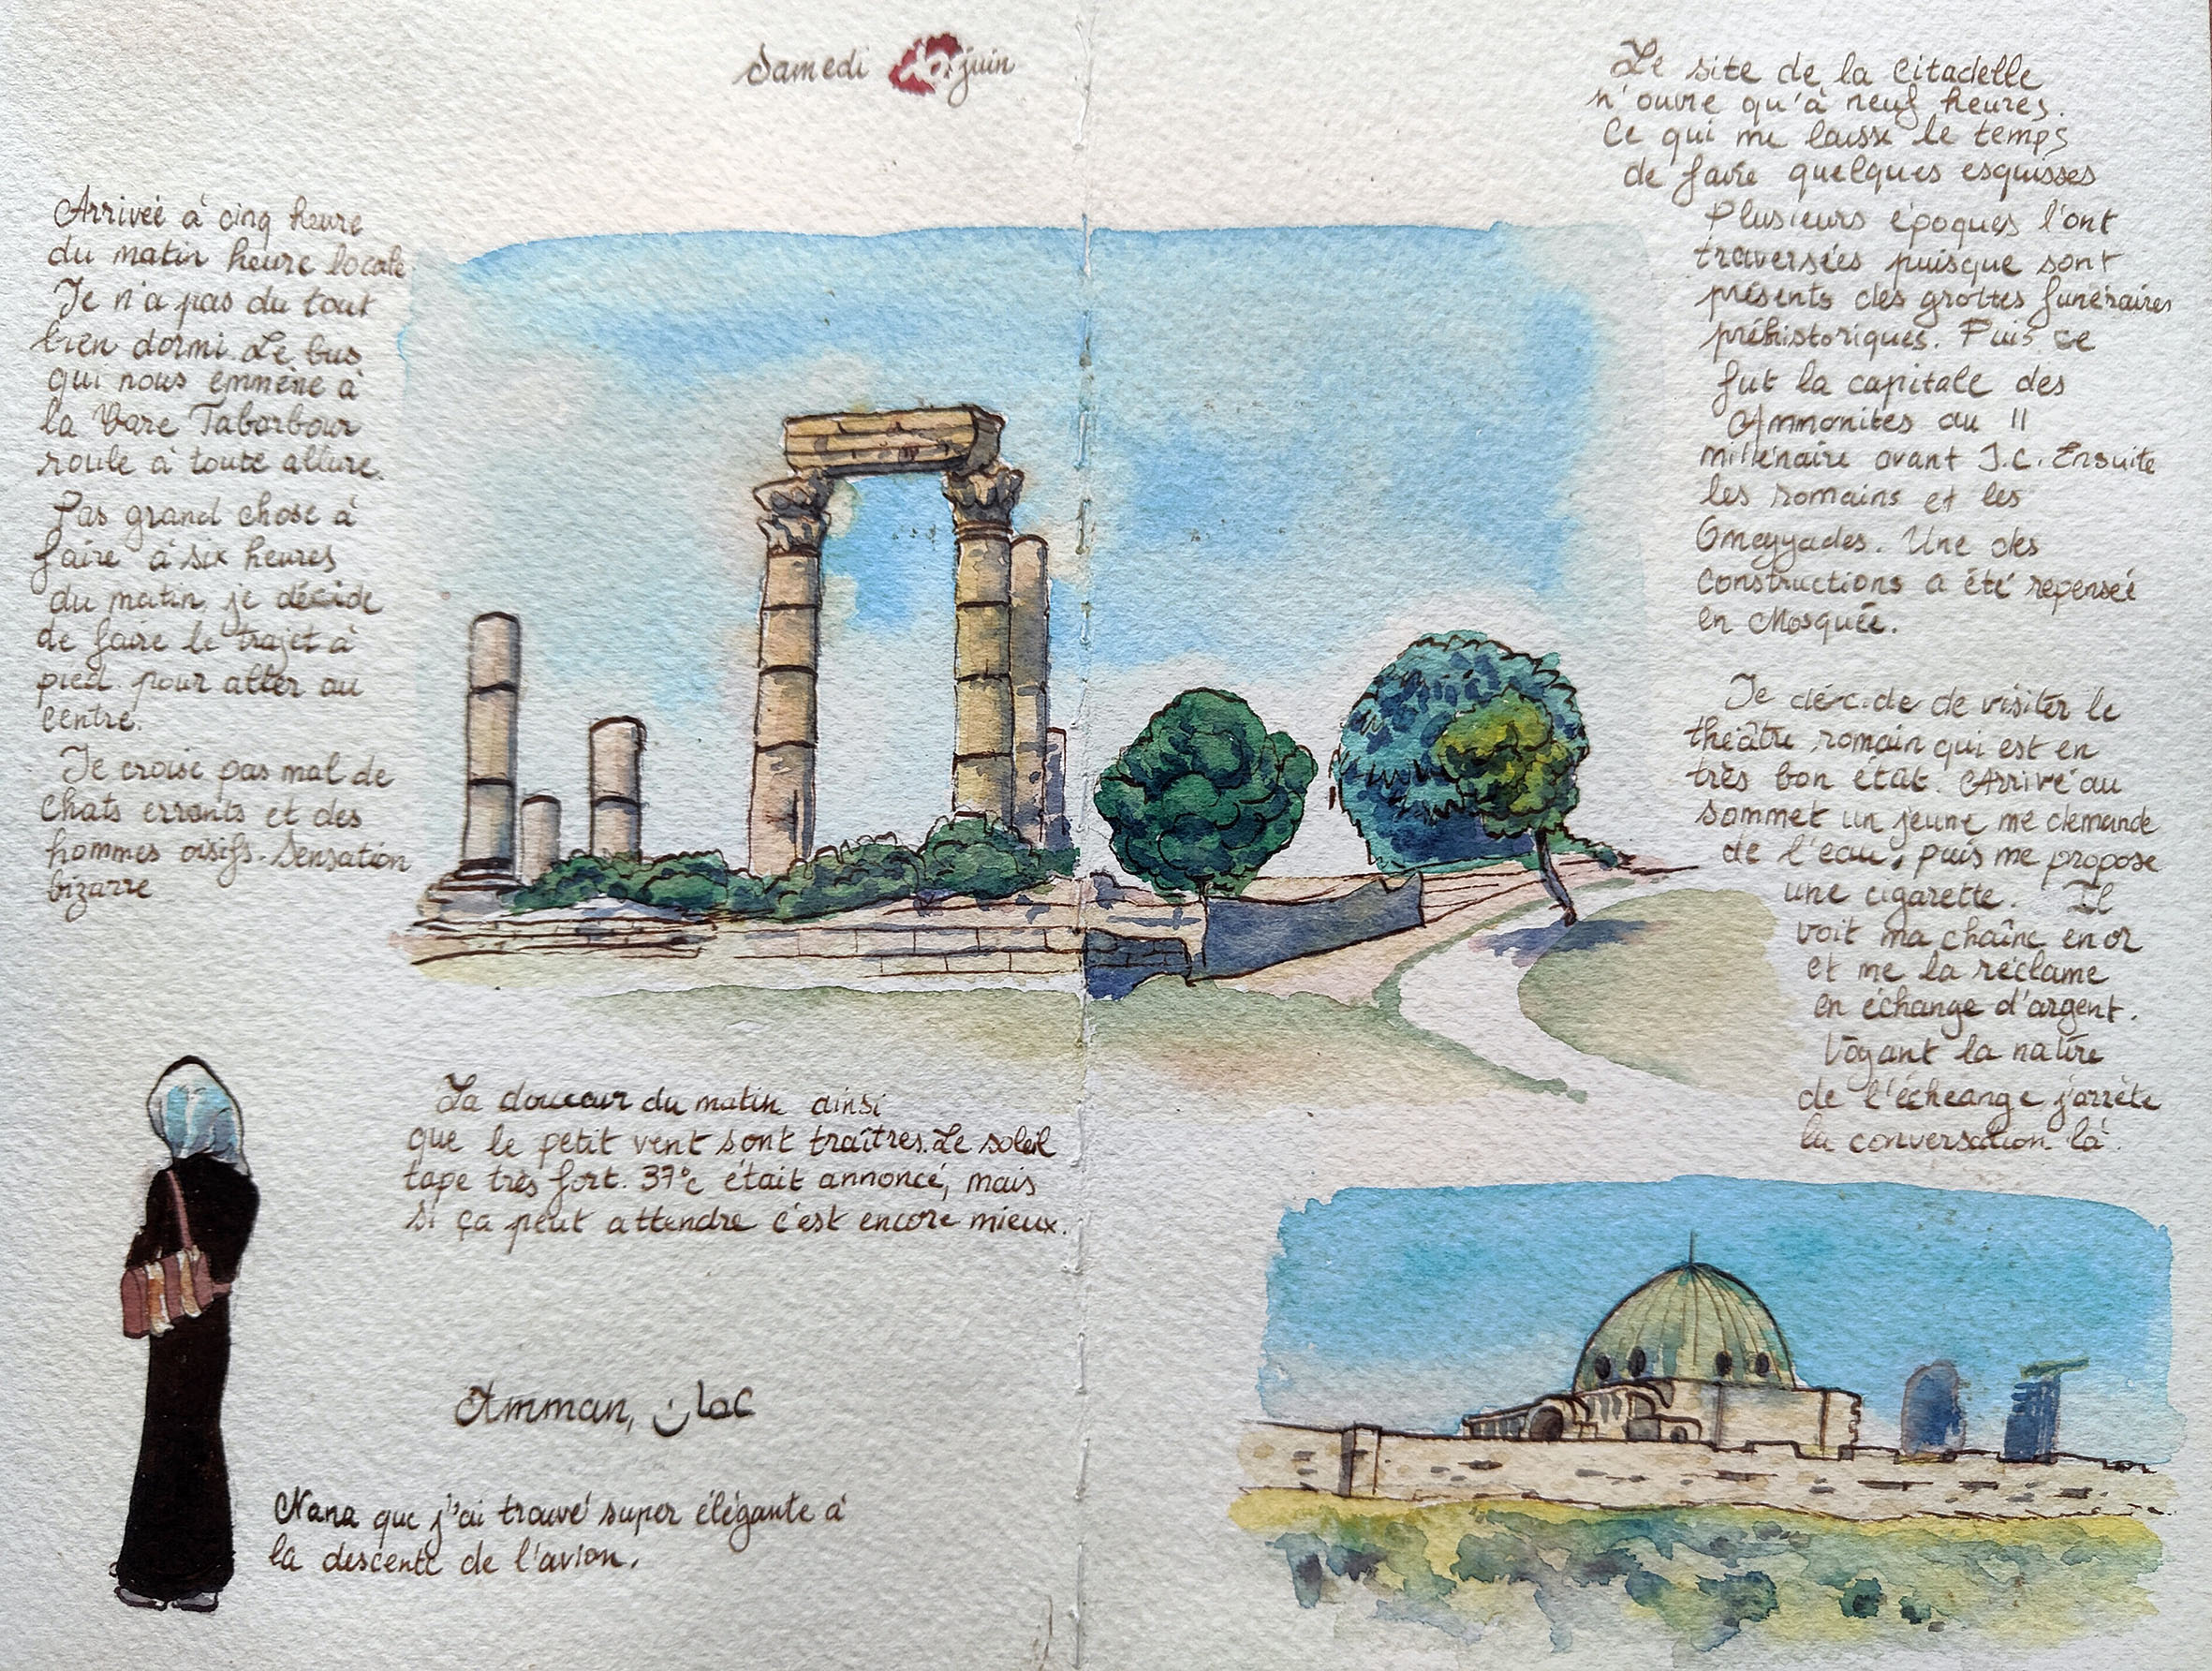 Samedi juin
Arrivée à cinq heure
du matin heure locale
Je n'a pas du tout
bien dormi. Le bus
qui nous emmène à
la Gare Tabarbour
roule à toute allure.
Pas grand chose à
faire à six heures
du matin, je décide
de faire le trajet à
pied pour aller au
centre.
Je croise pas mal de
chats errants et des
hommes oisifs. Sensation
bizarre
La douceur du matin ainsi
que le petit vent sont traîtres. Le soleil
tape très fort. 37°c était annoncé, mais
si ça peut attendre c'est encore mieux.
Amman, عمان
Nana que j'ai trouvé super élégante à
la descente de l'avion.
Le site de la Citadelle
n'ouvre qu'à neuf heures.
Ce qui me laisse le temps
de faire quelques esquisses
Plusieurs époques l'ont
traversées puisque sont
présents des grottes funéraires
préhistoriques. Puis ce
fut la capitale des
Ammonites au II
millénaire avant J.C. Ensuite
les romains et les
Omeyyades. Une des
constructions a été repensée
en Mosquée.
Je décide de visiter le
théâtre romain qui est en
très bon état. Arrivé au
sommet un jeune me demande
de l'eau, puis me propose
une cigarette. Il
voit ma chaîne en or
et me la réclame
en échange d'argent.
Voyant la nature
de l'écheange j'arrête
la conversation là.